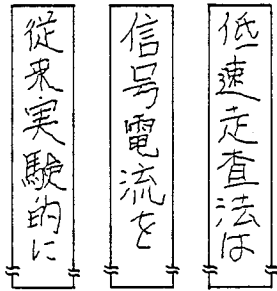 低速走査法は
信号電流を
従来実験的に